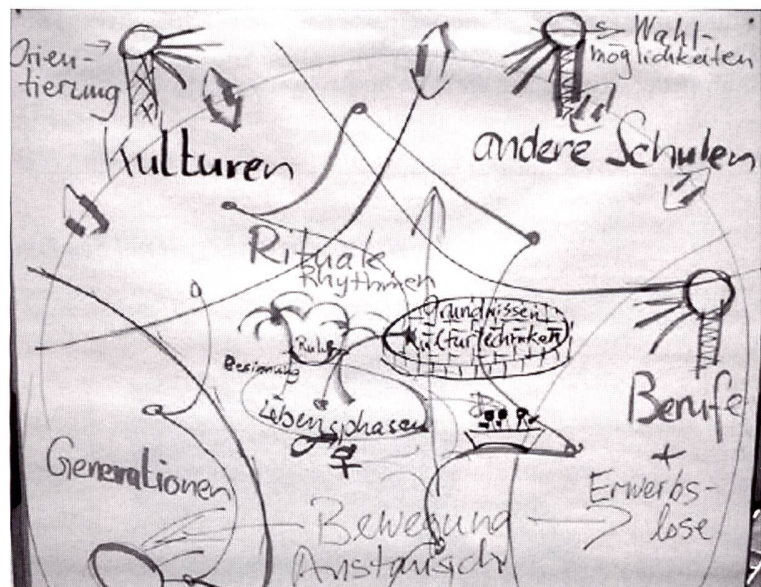 Orien-
tierung
Wahl-
möglichkeiten
Kulturen
andere Schulen
Rituale
Rhythmen
Grundwissen
Kulturtechniken
Ruhe
Besinnung
Lebensphasen
Berufe
+
Erwerbs-
lose
Generationen
Bewegung
Austausch